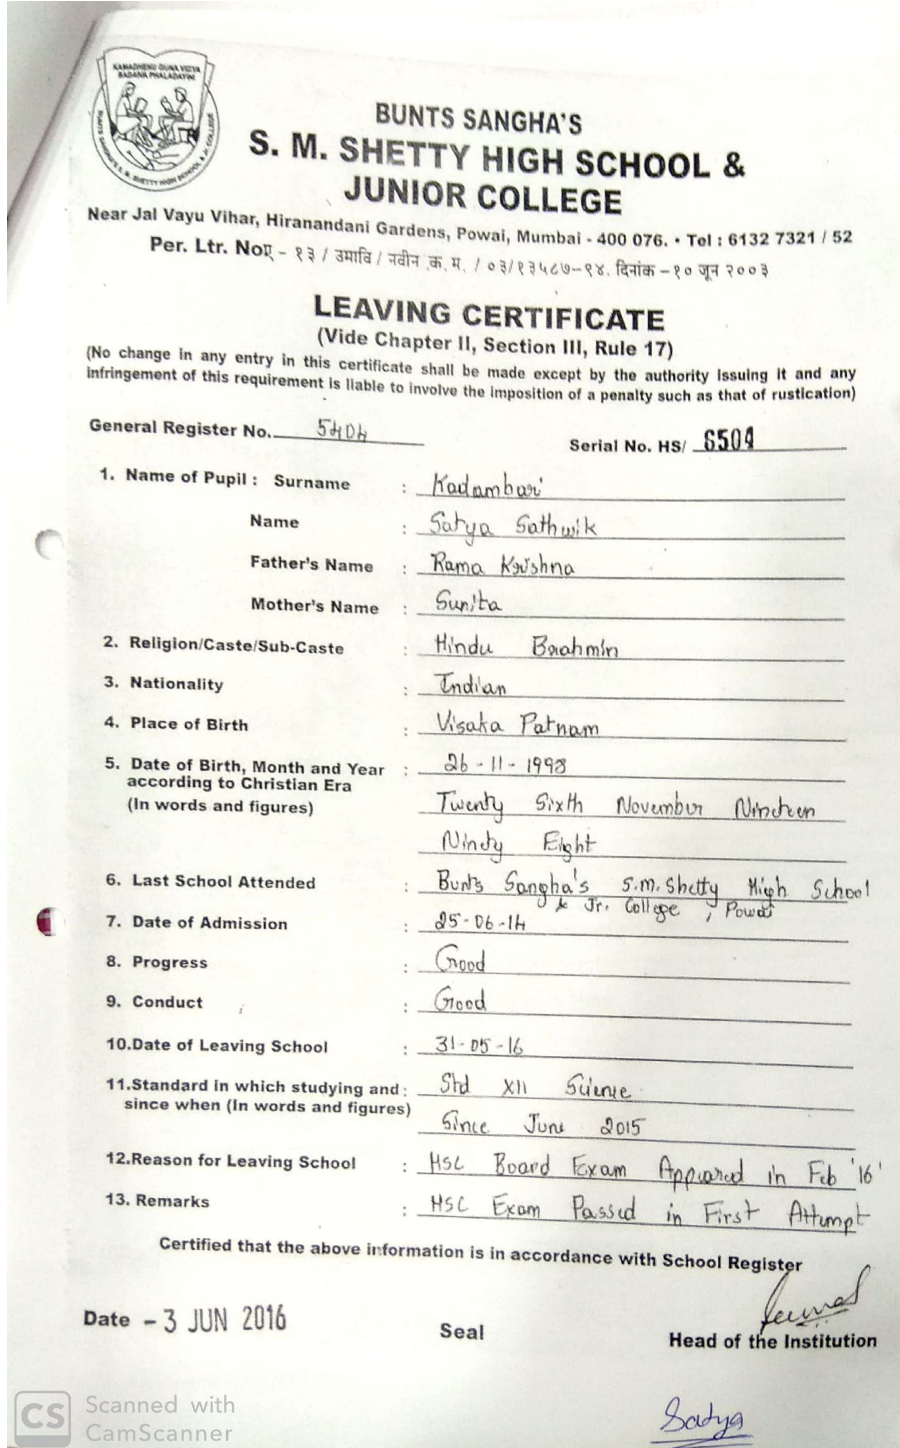 KAMADHENU GUNA VIDYA
SADANA PHALADAYINI
BUNTS SANGHA'S S. M. SHETTY HIGH SCHOOL & Jr. COLLEGE
BUNTS SANGHA'S
S. M. SHETTY HIGH SCHOOL &
JUNIOR COLLEGE
Near Jal Vayu Vihar, Hiranandani Gardens, Powai, Mumbai - 400 076. • Tel : 6132 7321 / 52
Per. Ltr. No. - १३ / उमावि / नवीन क. म. / ०३/१३५८७-९४. दिनांक - १० जून २००३
LEAVING CERTIFICATE
(Vide Chapter II, Section III, Rule 17)
(No change in any entry in this certificate shall be made except by the authority issuing it and any
infringement of this requirement is liable to involve the imposition of a penalty such as that of rustication)
General Register No. 5404 Serial No. HS/ 6504
1. Name of Pupil : Surname : Kadambari
Name : Satya Sathwik
Father's Name : Rama Krishna
Mother's Name : Sunita
2. Religion/Caste/Sub-Caste : Hindu Brahmin
3. Nationality : Indian
4. Place of Birth : Visaka Patnam
5. Date of Birth, Month and Year : 26-11-1998
according to Christian Era
(In words and figures) Twenty Sixth November Nineteen
Ninety Eight
6. Last School Attended : Bunts Sangha's S.M. Shetty High School
& Jr. College, Powai
7. Date of Admission : 25-06-14
8. Progress : Good
9. Conduct : Good
10.Date of Leaving School : 31-05-16
11.Standard in which studying and : Std XII Science
since when (In words and figures) Since June 2015
12.Reason for Leaving School : HSC Board Exam Appeared in Feb '16'
13. Remarks : HSC Exam Passed in First Attempt
Certified that the above information is in accordance with School Register
Date - 3 JUN 2016
Seal
Head of the Institution
CS Scanned with
CamScanner
Satya